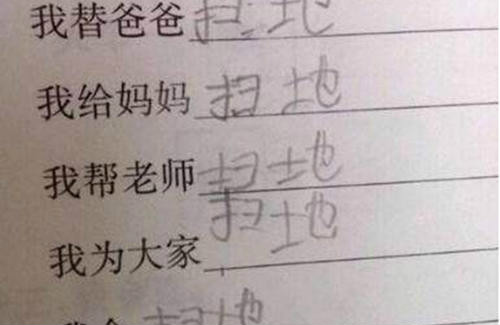 我替爸爸扫地
我给妈妈扫地
我帮老师扫地
我为大家扫地
扫地